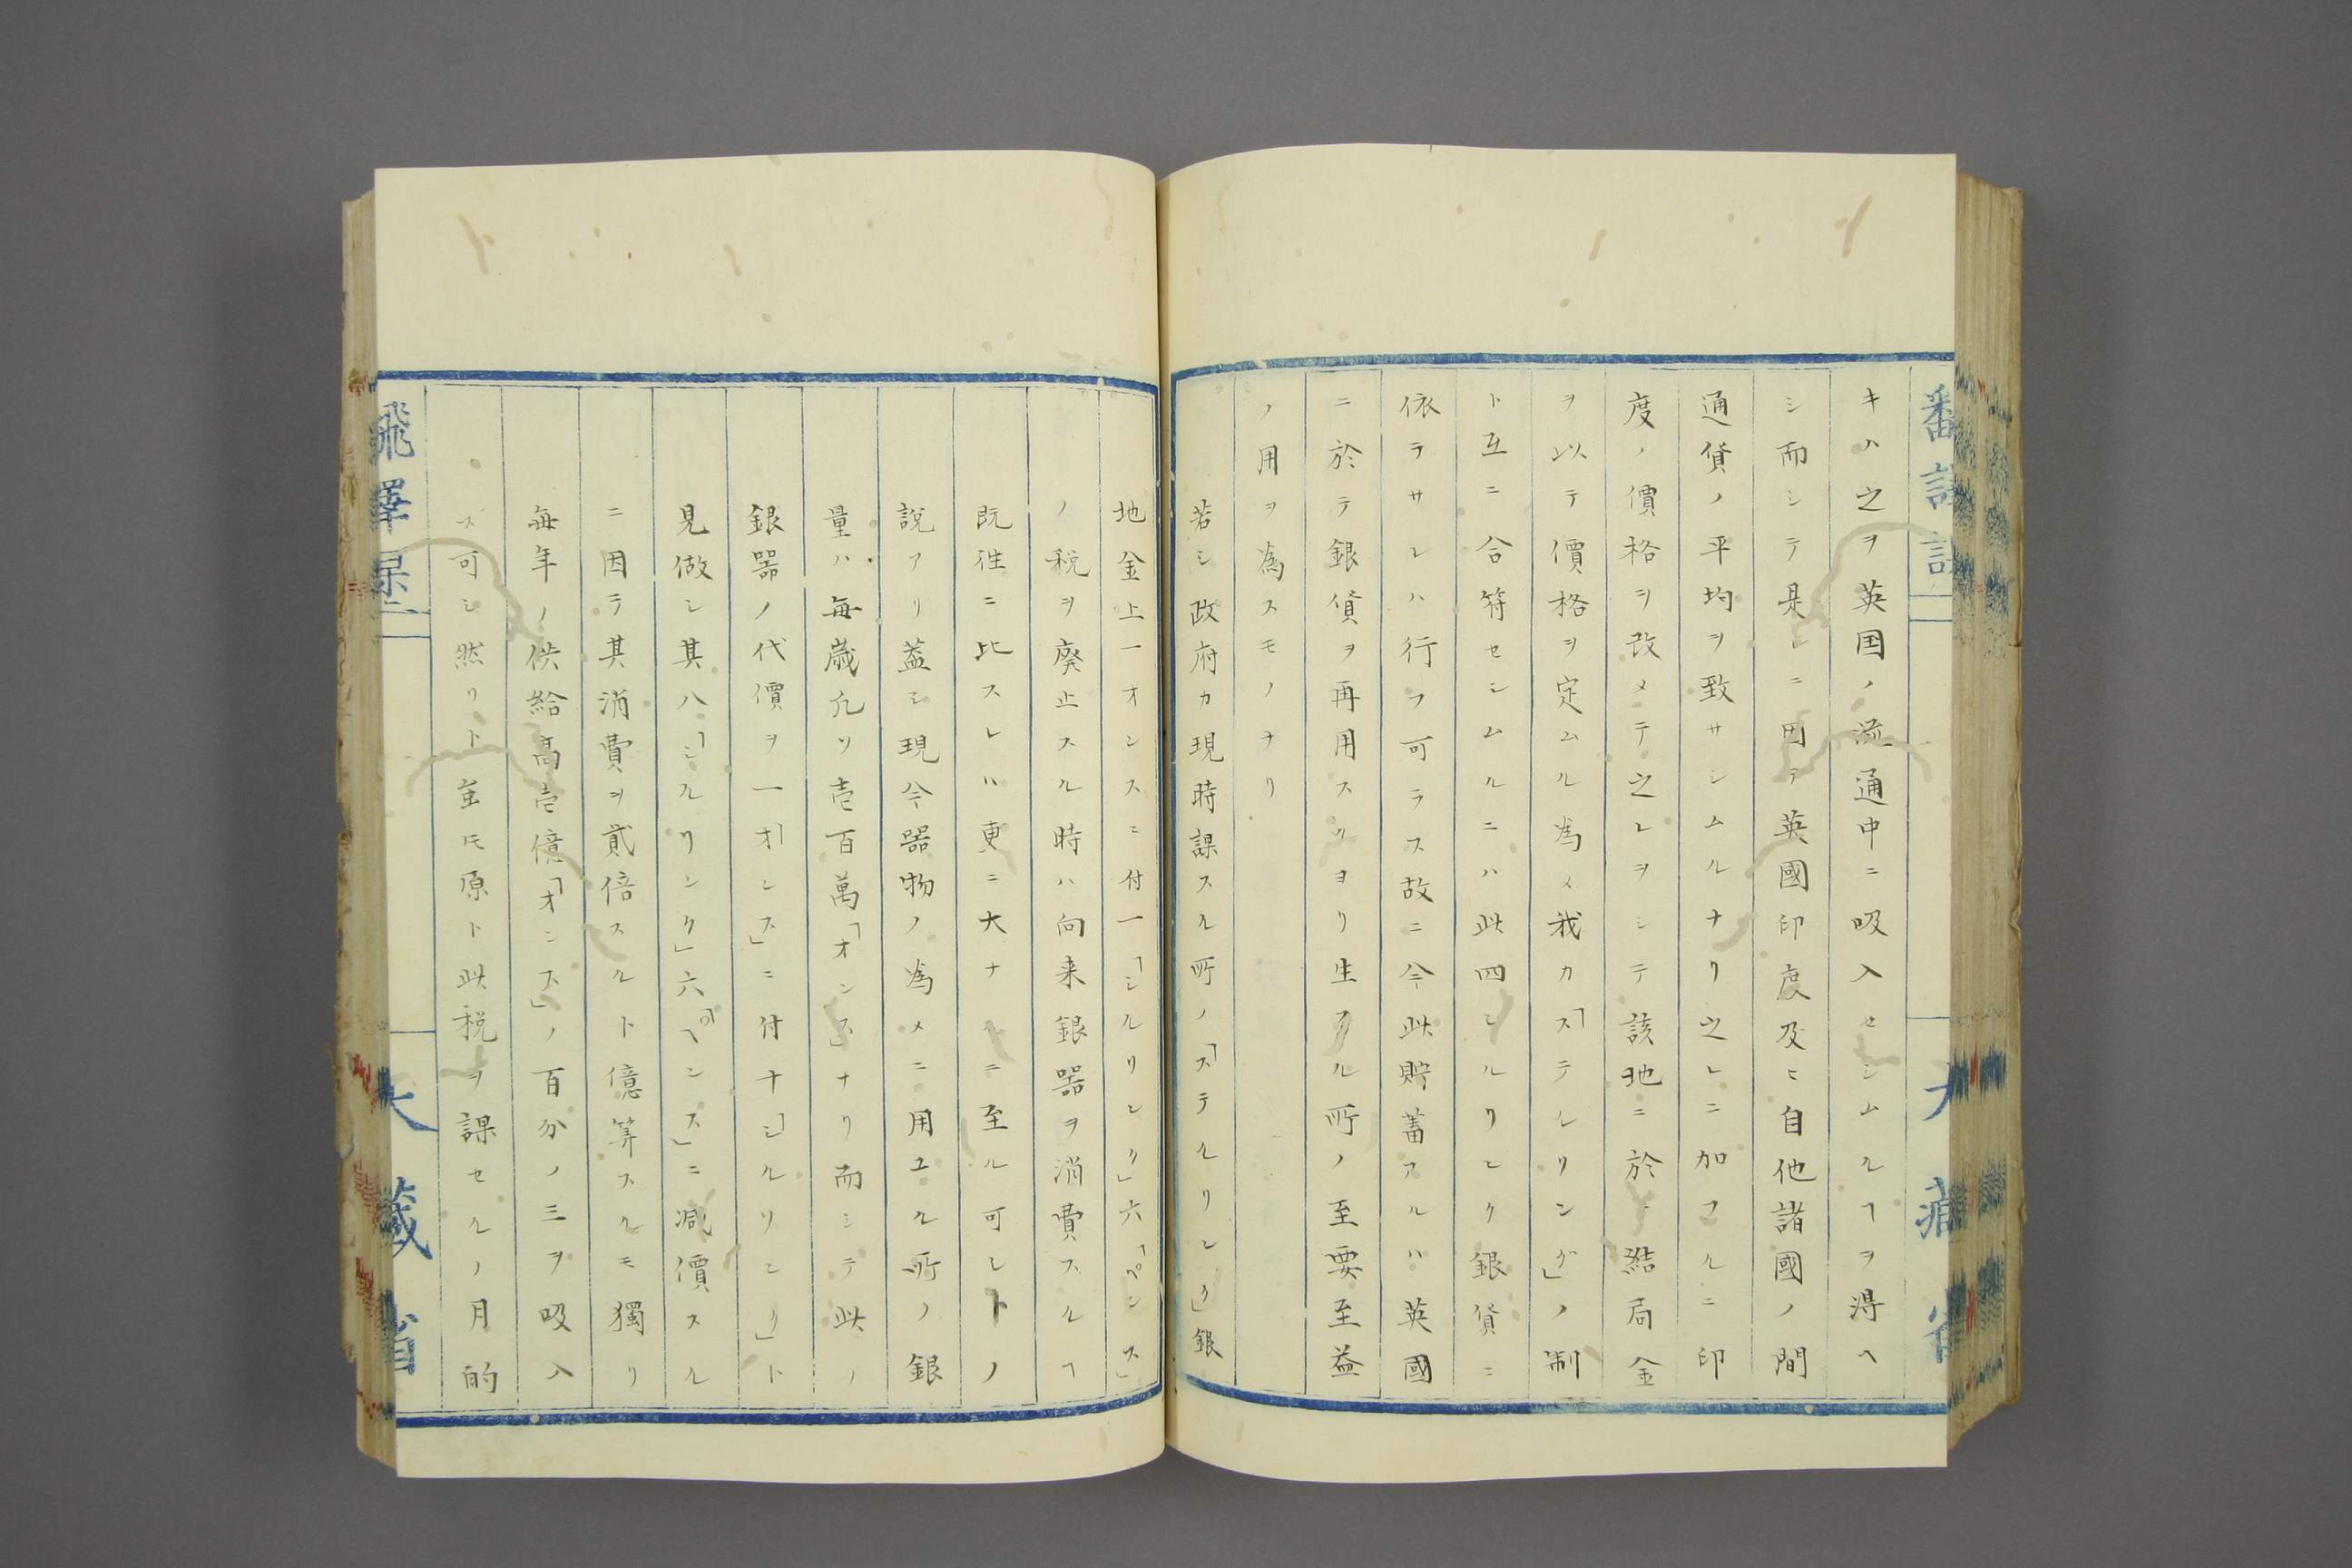 キハ之ヲ英国ノ流通中ニ吸入セシムルヿヲ得ヘ
シ而シテ是レニ因テ英國印度及ヒ自他諸國ノ間
通貨ノ平均ヲ致サシムルナリ之レニ加フルニ印
度ノ價格ヲ改メテ之レヲシテ該地ニ於結局金
ヲ以テ價格ヲ定ムル為メ我カ「ステレリング」ノ制
ト互ニ合符セシムルニハ此四シルリンク銀貨ニ
依テサレハ行フ可ラス故ニ今此貯蓄アルハ英國
ニ於テ銀貨ヲ再用スルヨリ生スル所ノ至要至益
ノ用ヲ為スモノナリ
若シ政府カ現時課スル所ノ「ステルリンク」銀
地金上一オンスニ付一「シルリンク」六「ペンス」
ノ税ヲ廃止スル時ハ向来銀器ヲ消費スルヿ
既往ニ比スレハ更ニ大ナルニ至ル可シトノ
説アリ蓋シ現今器物ノ為メニ用ユル所ノ銀
量ハ毎歳凡ソ壱百萬「オンス」ナリ而シテ此ノ
銀器ノ代價ヲ一「オンス」ニ付十「シルリンク」ト
見做シ其八「シルリンク」六「ペンス」ニ减價スル
ニ因テ其消費ヲ貳倍スルト億算スルモ獨リ
毎年ノ供給高壱億「オンス」ノ百分ノ三ヲ吸入
ス可シ然リト𧈧モ原ト此税ヲ課セルノ月的
大藏省
大藏省